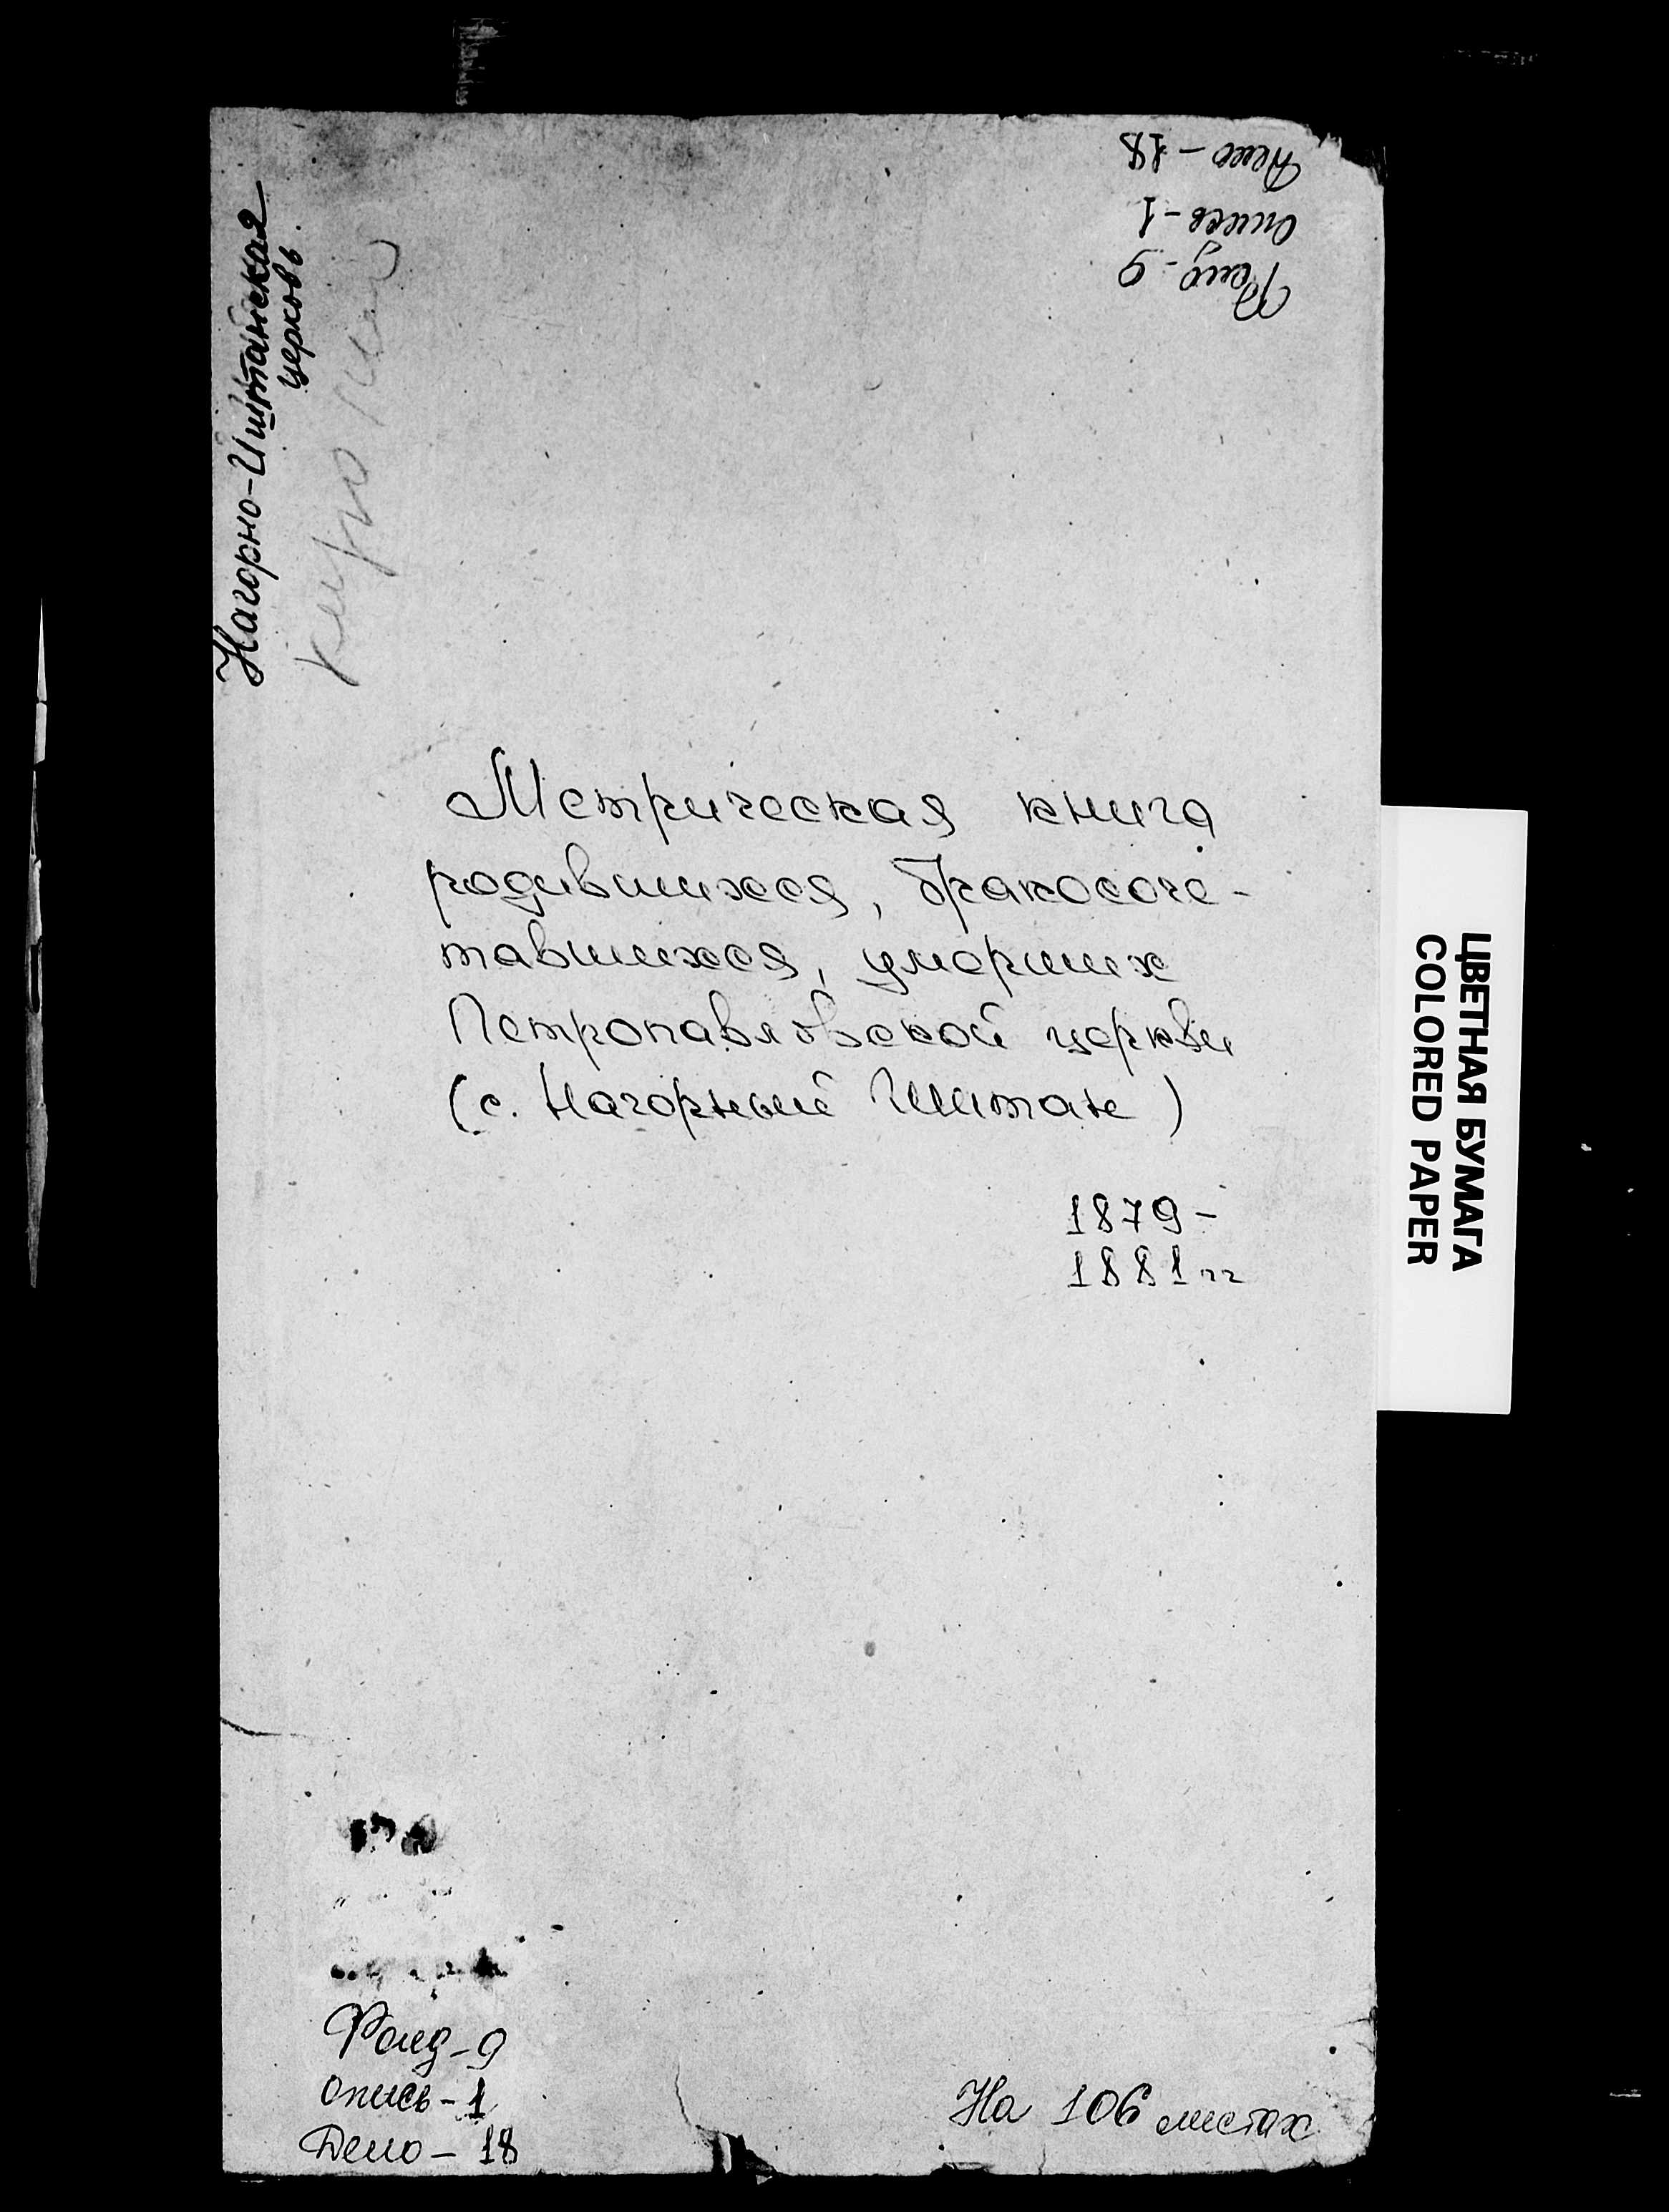 Дело - 18
Опись - 1
Фонд - 9
Нагорно-Иштанская
церковь.
Метрическая книга
родившихся, бракосоче-
тавшихся, умерших
Петропавловской церкви
(с. Нагорный Иштан)
1879 -
1881 гг
ЦВЕТНАЯ БУМАГА
COLORED PAPER
Фонд - 9
Опись - 1
Дело - 18
На 106 листах